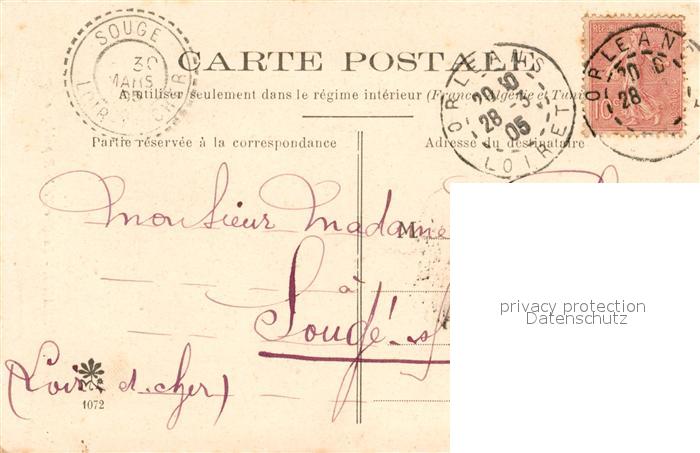 SOUGE
30
MARS
05
LOIR-ET-CHER
CARTE POSTALE
A utiliser seulement dans le régime intérieur (France, Algérie et Tunisie
ORLEANS
20 30
28 -3
05
LOIRET
ORLEAN
28
10
Partie réservée à la correspondance
Adresse du destinataire
Monsieur Madame
M
à
Sougé s/
(Loir et cher)
1072
privacy protection
Datenschutz